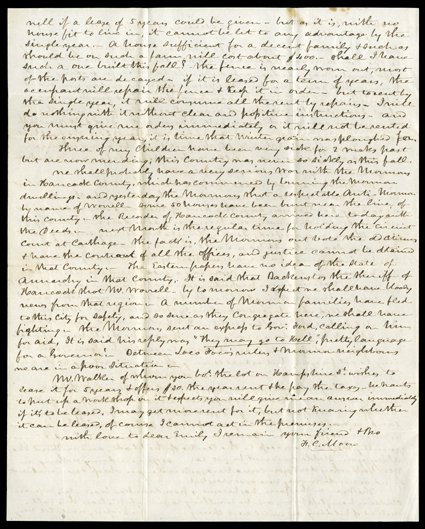 well if a lease of 5 years could be given - but as it is, with no
house fit to live in, it cannot be let to any advantage by the
single year. A house sufficient for a decent family & such as
should be on such a farm, will cost about $400. Shall I have
such a one built this fall? The fence is nearly worn out, most
of the posts are decayed. if it is leased for a term of years, the
occupant will repair the fence & keep it in order - but to rent by
the single year, it will consume all the rent by repairs. I will
do nothing with it without clear and positive instructions. and
you must give me orders immediately or it will not be rented
for the ensuing year, it is time that Winter grain was ploughed for.
Three of my Children have been very sick for 2 weeks past
but are now mending, this County was never so sickly as this fall.
We shall probably have a very serious War with the Mormons
in Hancock County, which has commenced by burning the Mormon
dwellings and yesterday the Mormons shot a respectable Anti-Mormon
by name of Worrell. Some 50 houses have been burnt near the line of
this County. The Recorder of Hancock County arrived here to day with
the Deeds. next Month is the regular time for holding the Circuit
Court at Carthage. The fact is, the Mormons out vote the old Citizens
& have the Controul of all the offices, and justice cannot be obtained
in that County. The Eastern papers have no idea of the State of
Annarchy in that County. It is said that Backenstos the Sheriff of
Hancock shot W. Worrell. by tomorrow I expect we shall have bloody
news from that region. A number of Mormon families have fled
to this City for safety, and so sure as they Congregate here, we shall have
fighting. The Mormons sent an express to Gov. Ford, calling on him
for aid, It is said his reply was "They may go to Hell", pretty language
for a Governor! Between Loco Foco rulers & Mormon neighbours
we are in a poor Situation.
Mr. Walker of whom you bot. the lot on Hampshire St. wishes to
lease it for 5 years & offers $20. the year rent & pay the taxes. he wants
to put up a Work Shop on it & expects you will give me an answer immediately
if it is to be leased, I may get more rent for it, but not knowing whether
it can be leased, of course I cannot act in the premises.
With love to dear Emily I remain your friend & Bro
H. C. Moore